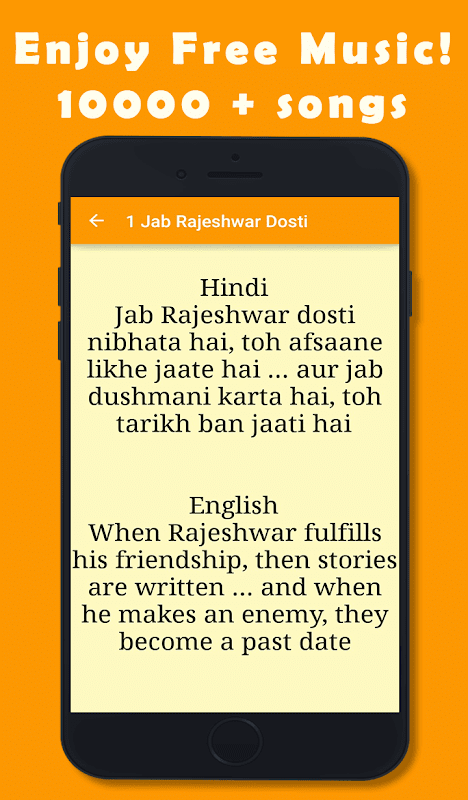 Enjoy Free Music!
10000 + songs
1 Jab Rajeshwar Dosti
Hindi
Jab Rajeshwar dosti
nibhata hai, toh afsaane
likhe jaate hai ... aur jab
dushmani karta hai, toh
tarikh ban jaati hai
English
When Rajeshwar fulfills
his friendship, then stories
are written ... and when
he makes an enemy, they
become a past date